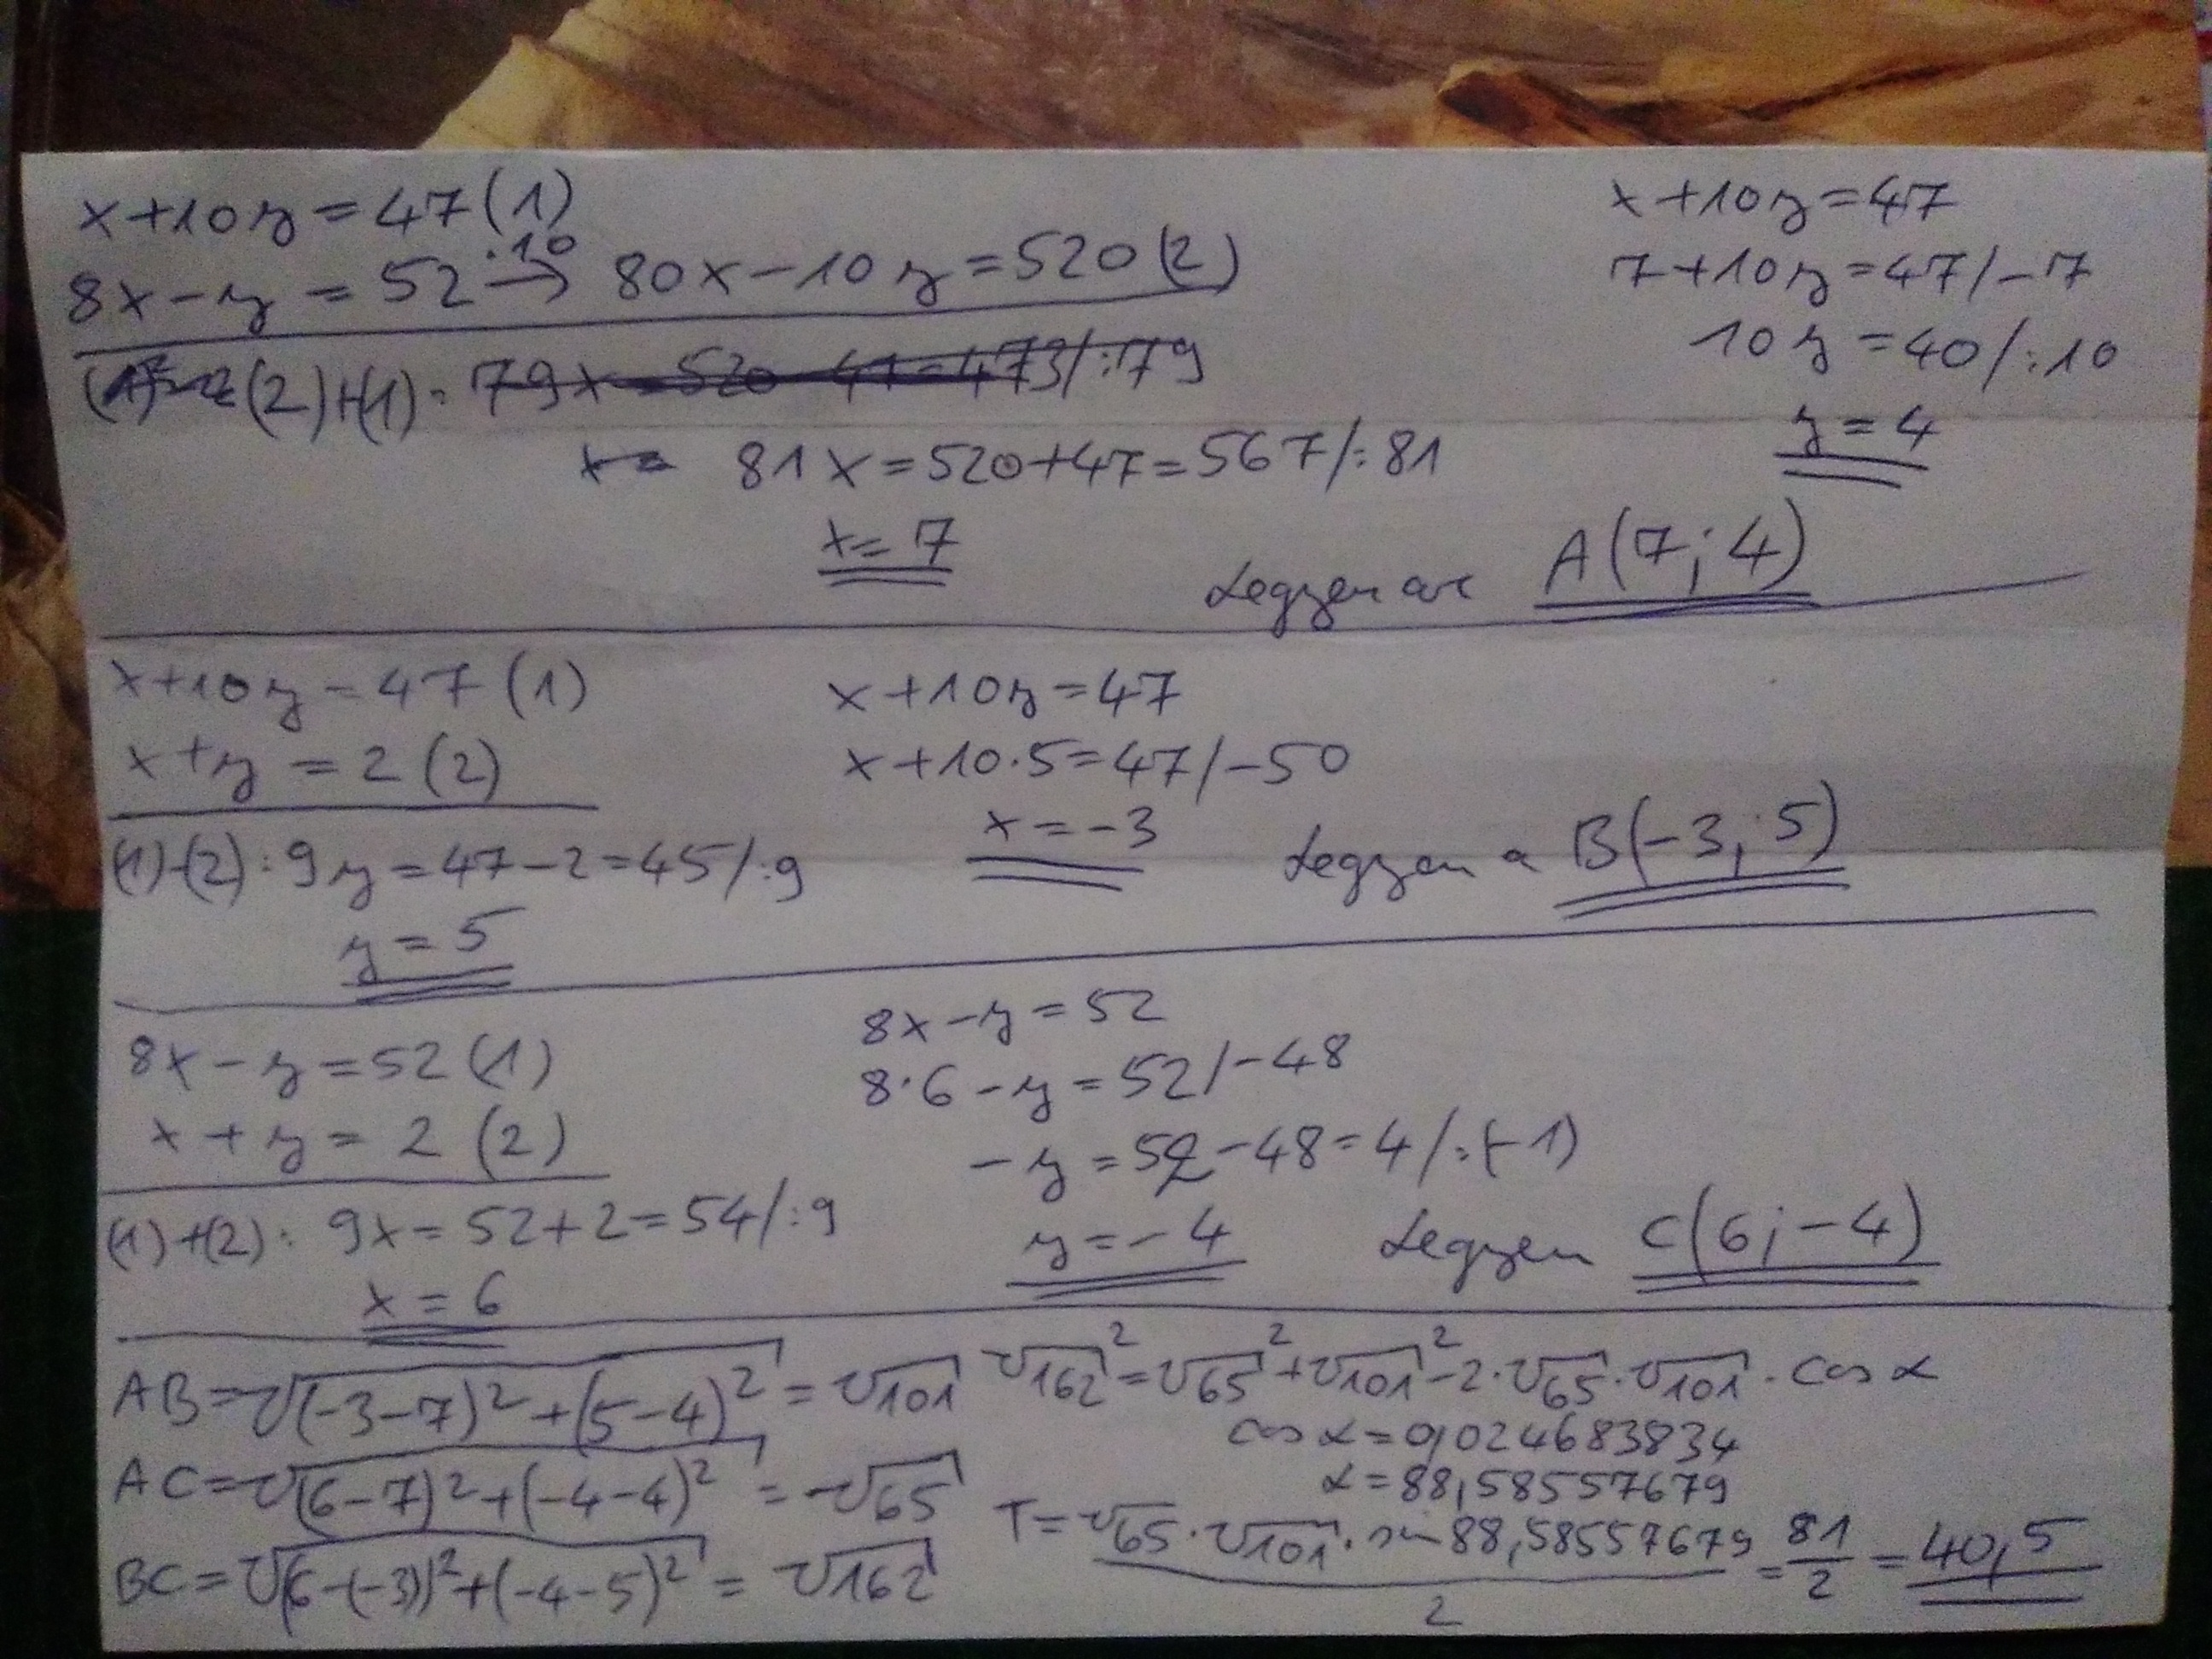 x+10y=47(1)
8x-y=52 ·10→ 80x-10y=520(2)
(2)+(1): 79x=520-47=473/:79
x= 81x=520+47=567/:81
x=7
x+10y=47
7+10y=47/-7
10y=40/:10
y=4
Legyen az A(7;4)
x+10y=47(1)
x+y=2(2)
(1)-(2): 9y=47-2=45/:9
y=5
x+10y=47
x+10·5=47/-50
x=-3
Legyen a B(-3;5)
8x-y=52(1)
x+y=2(2)
(1)+(2): 9x=52+2=54/:9
x=6
8x-y=52
8·6-y=52/-48
-y=52-48=4/:(-1)
y=-4
Legyen C(6;-4)
AB=√((-3-7)²+(5-4)²)=√101
AC=√((6-7)²+(-4-4)²)=√65
BC=√((6-(-3))²+(-4-5)²)=√162
√162²=√65²+√101²-2·√65·√101·cos α
cos α=0,024683834
α=88,58557679
T=√65·√101·sin 88,58557679/2=81/2=40,5